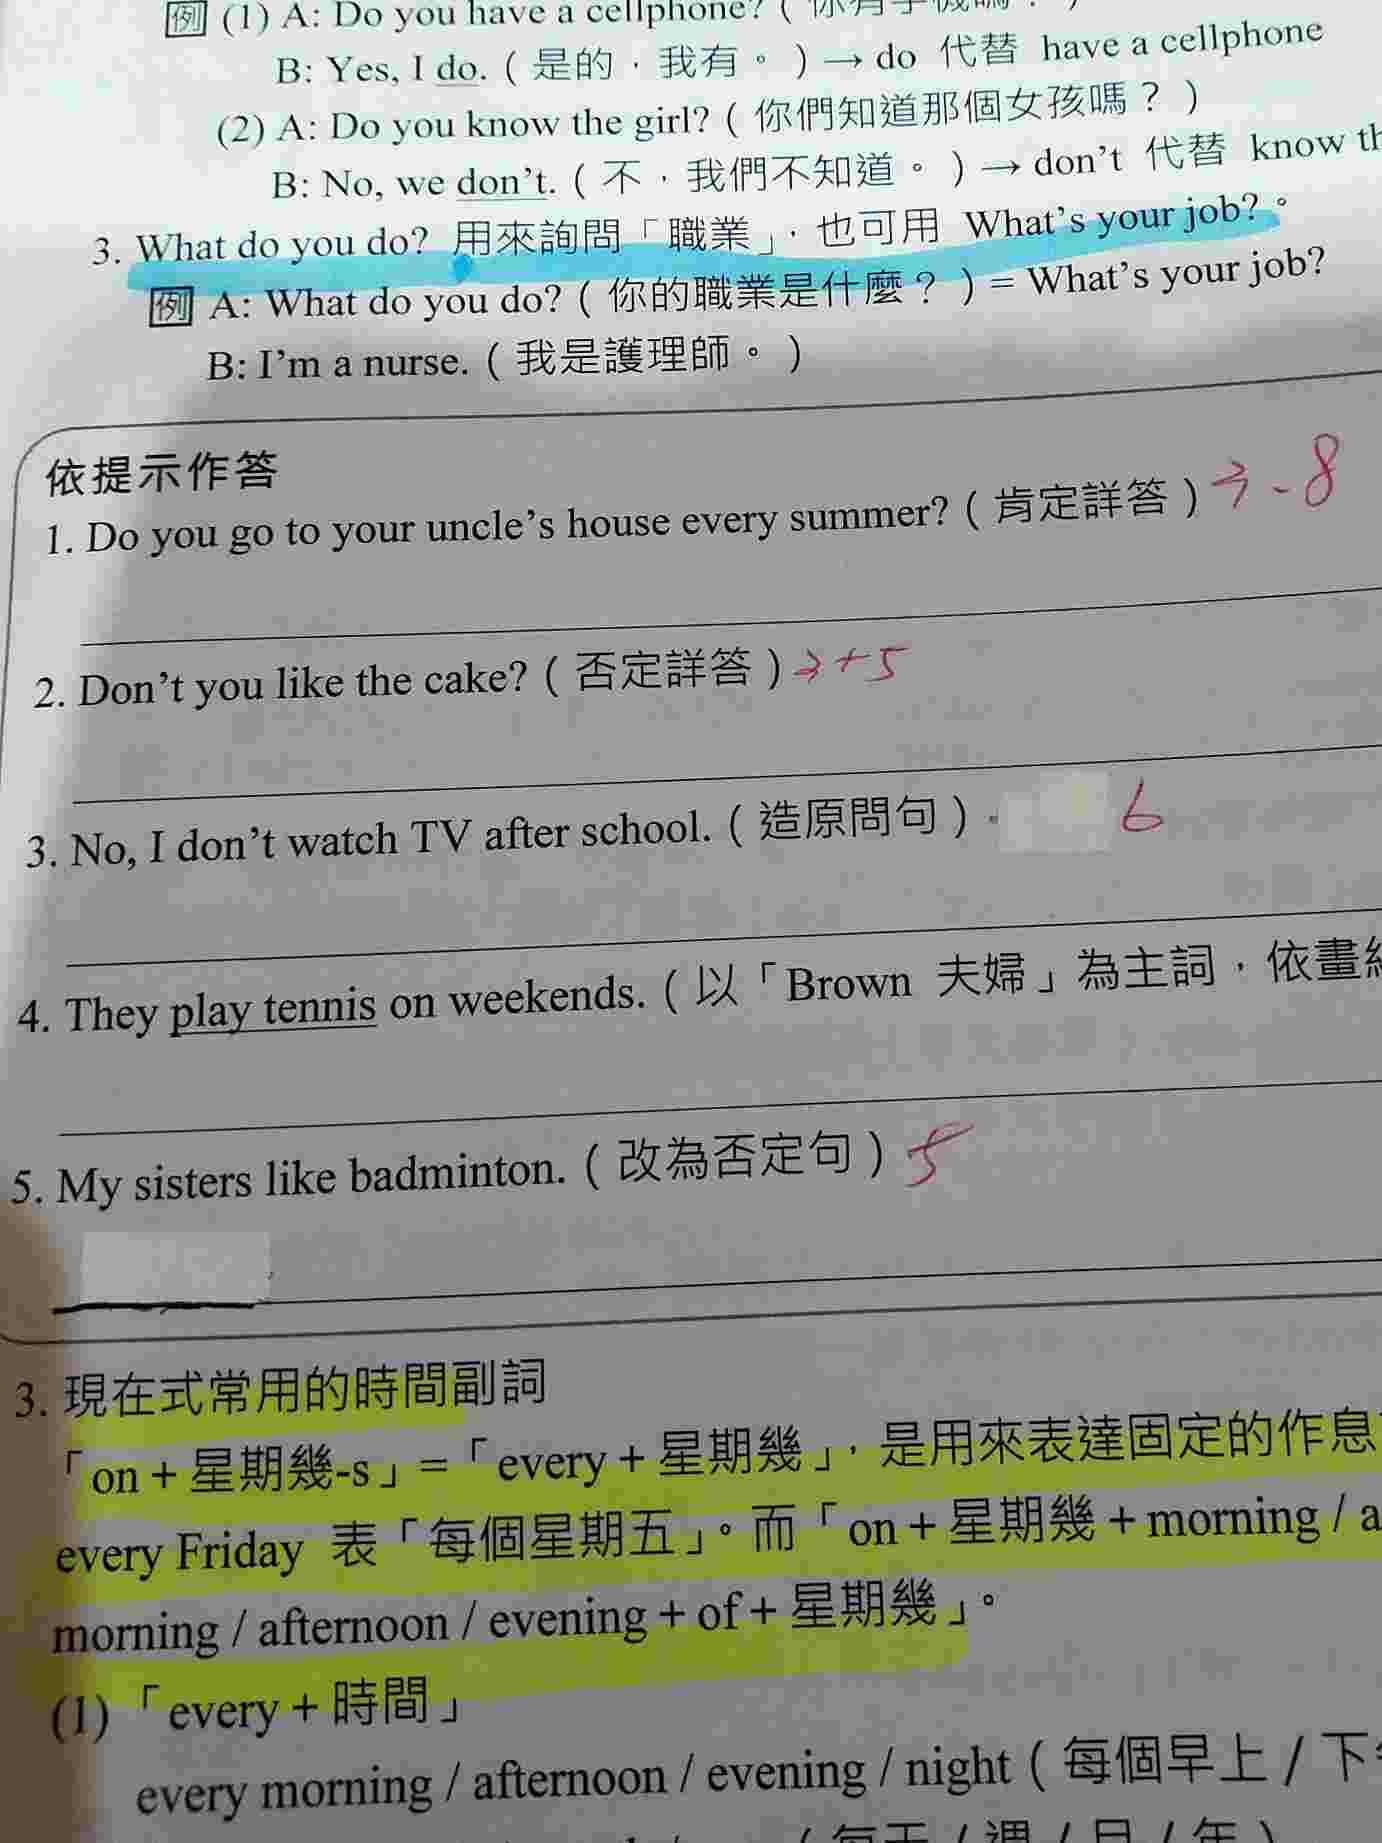 例 (1) A: Do you have a cellphone?
B: Yes, I do.(是的，我有。)→ do 代替 have a cellphone
(2) A: Do you know the girl?(你們知道那個女孩嗎？)
B: No, we don't.(不，我們不知道。)→ don't 代替 know
3. What do you do? 用來詢問「職業」，也可用 What's your job?。
例 A: What do you do?(你的職業是什麼？)= What's your job?
B: I'm a nurse.(我是護理師。)
依提示作答
1. Do you go to your uncle's house every summer?(肯定詳答)
2. Don't you like the cake?(否定詳答) +5
3. No, I don't watch TV after school.(造原問句) 6
4. They play tennis on weekends.(以「Brown 夫婦」為主詞，依畫
5. My sisters like badminton.(改為否定句) 5
3. 現在式常用的時間副詞
「on + 星期幾-s」=「every + 星期幾」，是用來表達固定的作息
every Friday 表「每個星期五」。而「on + 星期幾 + morning / a
morning / afternoon / evening + of + 星期幾」。
(1)「every + 時間」
every morning / afternoon / evening / night (每個早上 / 下